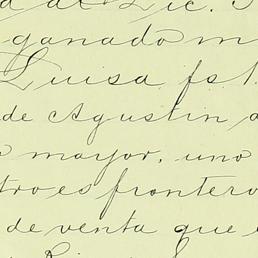 al Lic.
ganado m
Luisa. fs 1
de Agustin a
mayor, uno
tro es frontero
de venta que